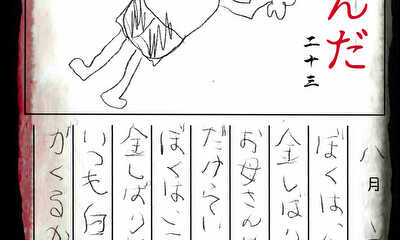 んだ
二十三
八月
ぼくは、
金しばり
お母さん
だけらい
ぼくは、こ
金しばり
いつも白
がくるか